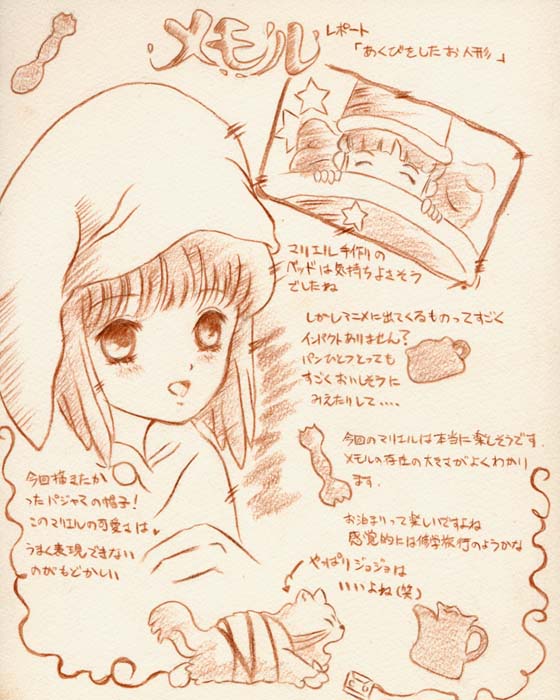 メモル
レポート
「あくびをしたお人形」
マリエル手作りの
ベッドは気持ちよさそう
でしたね
しかしアニメに出てくるものってすごく
インパクトありません？
パンひとつとっても
すごくおいしそうに
みえたりして‥‥
今回のマリエルは本当に楽しそうです。
メモルの存在の大きさがよくわかり
ます。
お泊まりって楽しいですよね
感覚的には修学旅行のようかな
今回描きたか
ったパジャマの帽子！
このマリエルの可愛さは
うまく表現できない
のがもどかしい
やっぱりジョジョは
いいよね(笑)